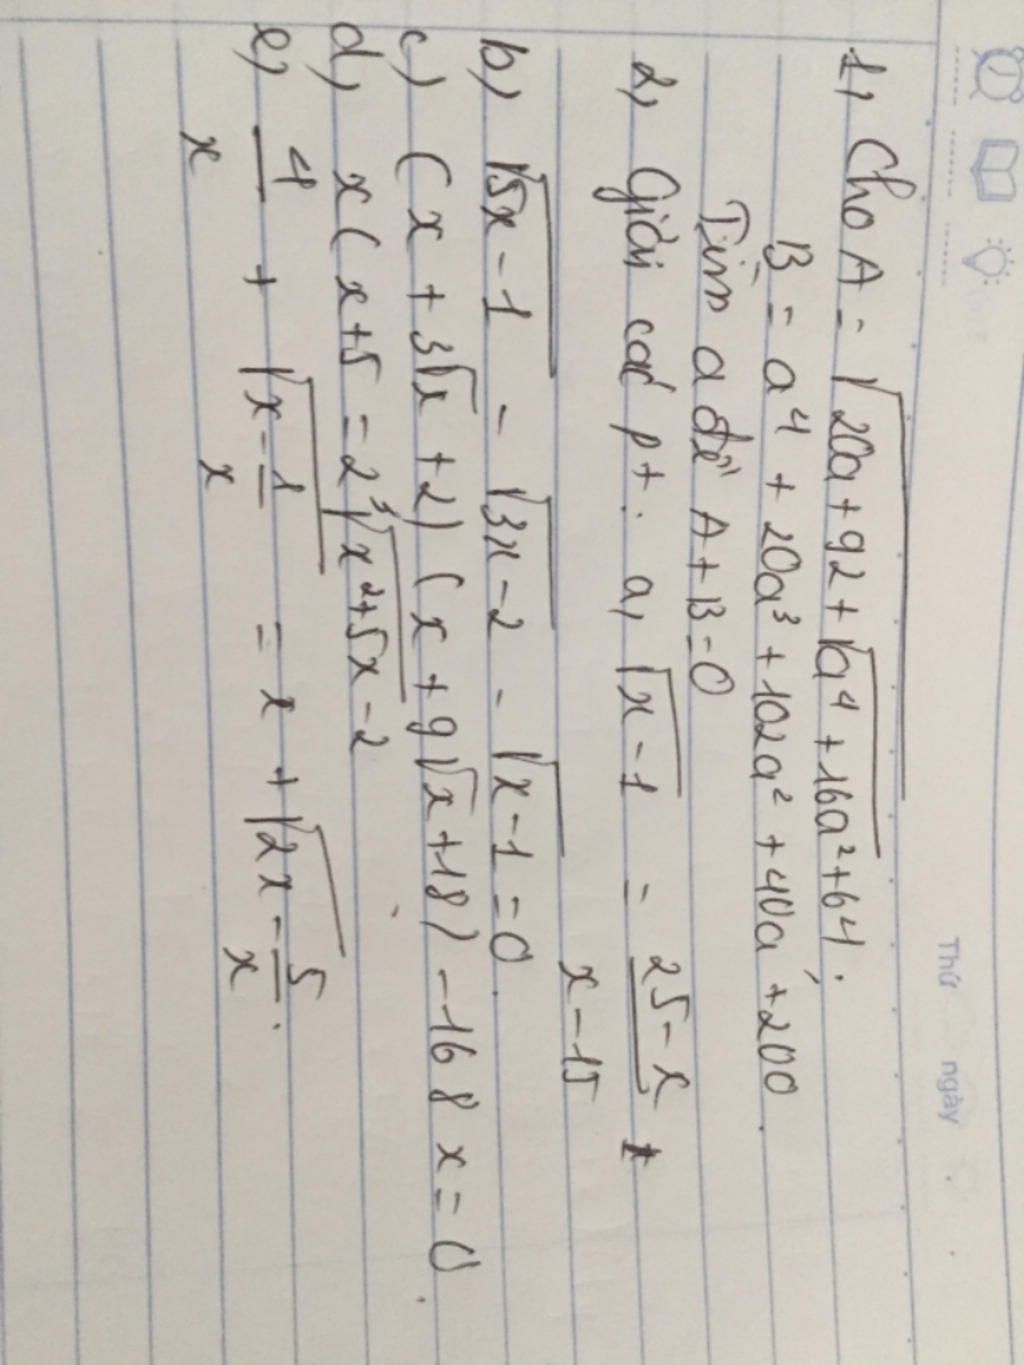 Thứ ngày
1, Cho A = √(20a + 92 + √(a⁴ + 16a² + 64)) ;
B = a⁴ + 20a³ + 102a² + 40a + 200.
Tìm a để A + B = 0
2, Giải các pt: a, √(x - 1) = (25 - x)/(x - 15)
b, √(5x - 1) - √(3x - 2) - √(x - 1) = 0.
c) (x + 3√x + 2) (x + 9√x + 18) - 168x = 0.
d, x(x + 5 = 2³√(x² + 5x - 2)
e, 4/x + √(x - 1/x) = x + √(2x - 5/x).